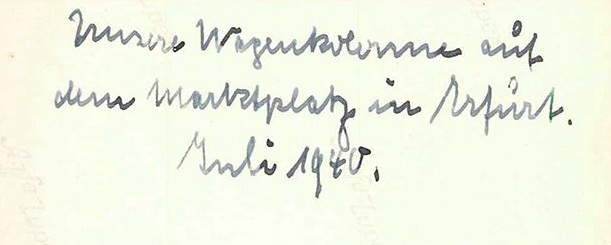 Unsere Wagenkolonne auf
dem Marktplatz in Erfurt.
Juli 1940.